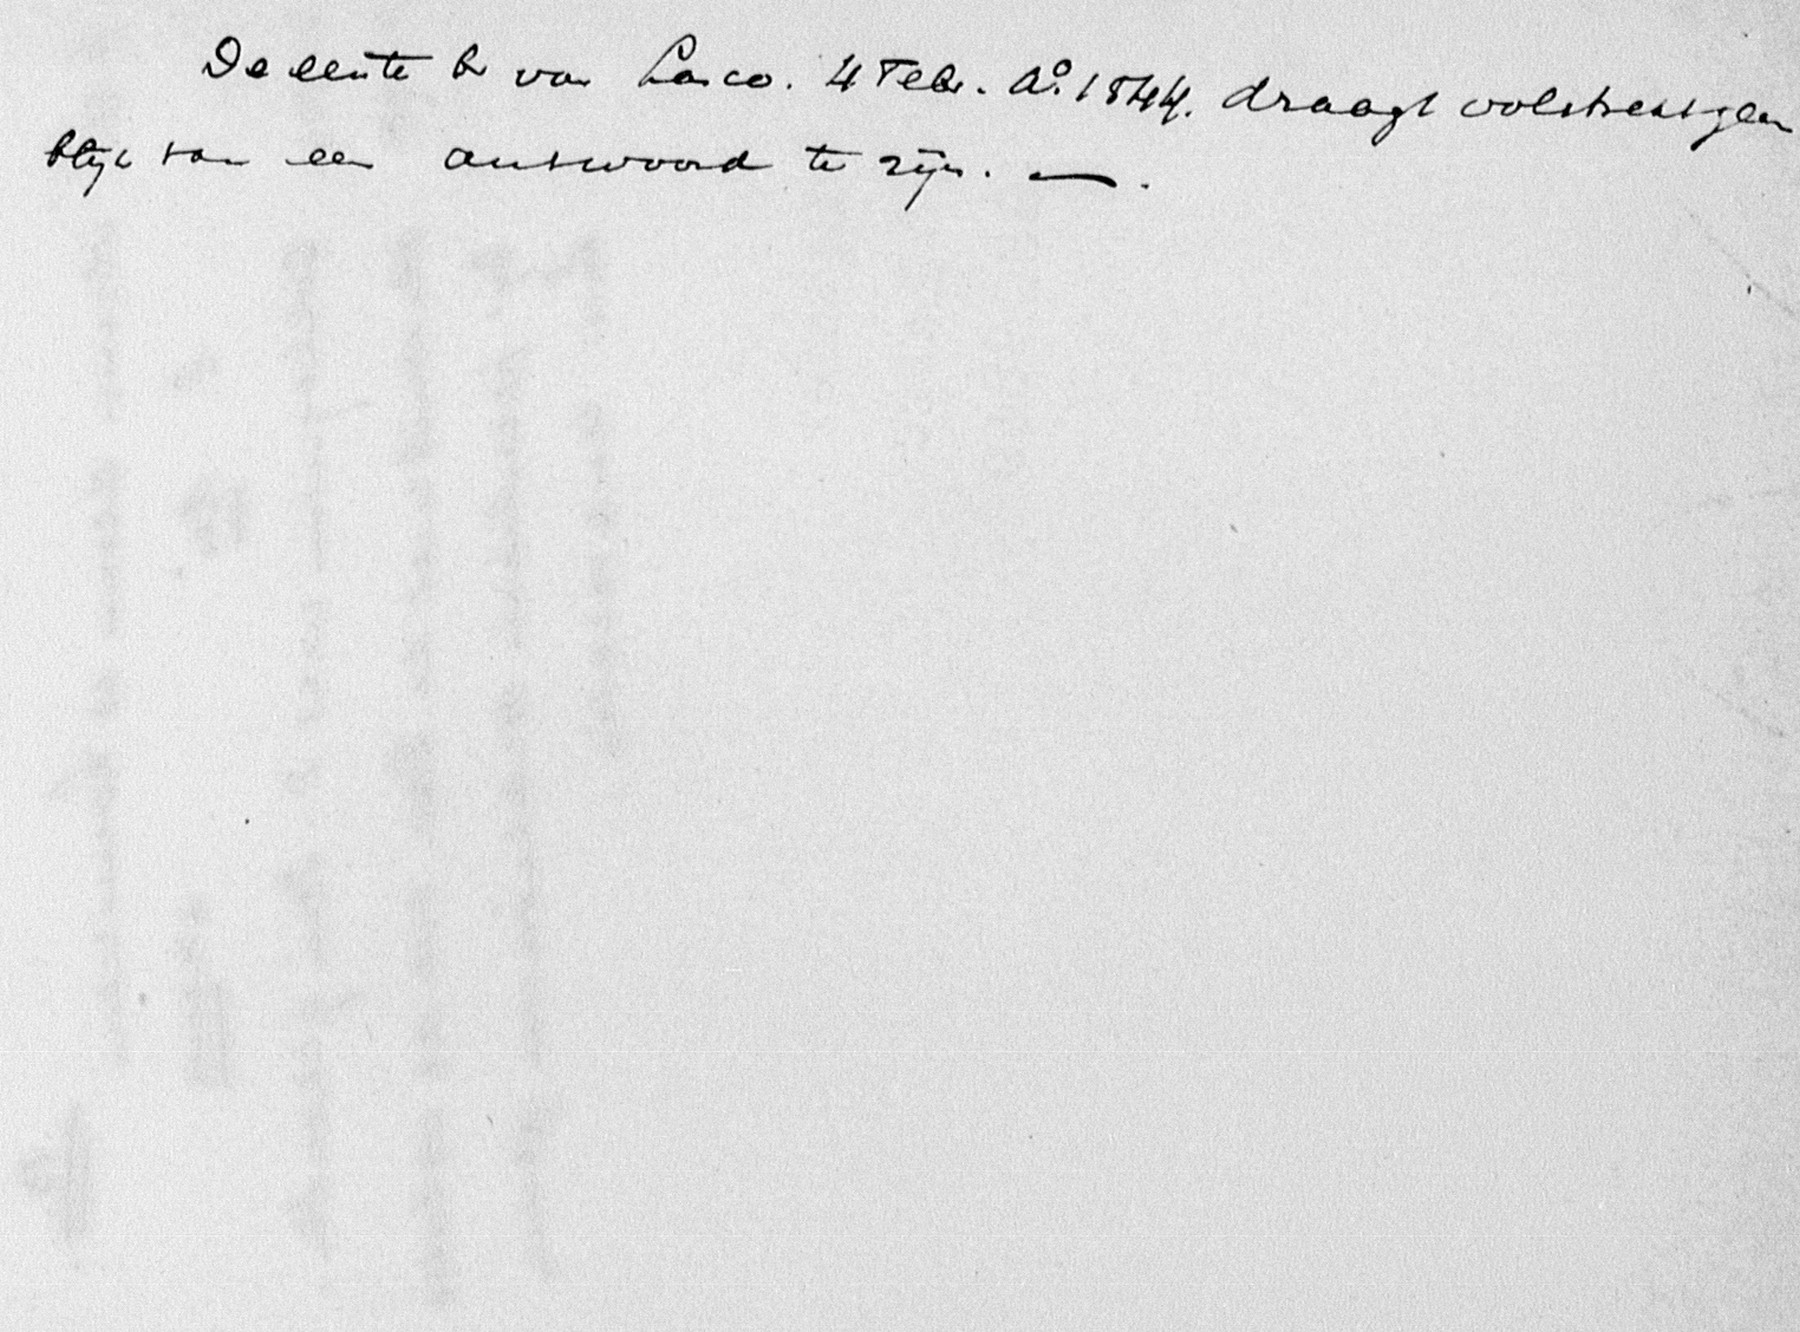 De eerste br van Lasco. 4 Febr. Ao. 1544. draagt volstrekt geen
blijk van een antwoord te zijn. —.